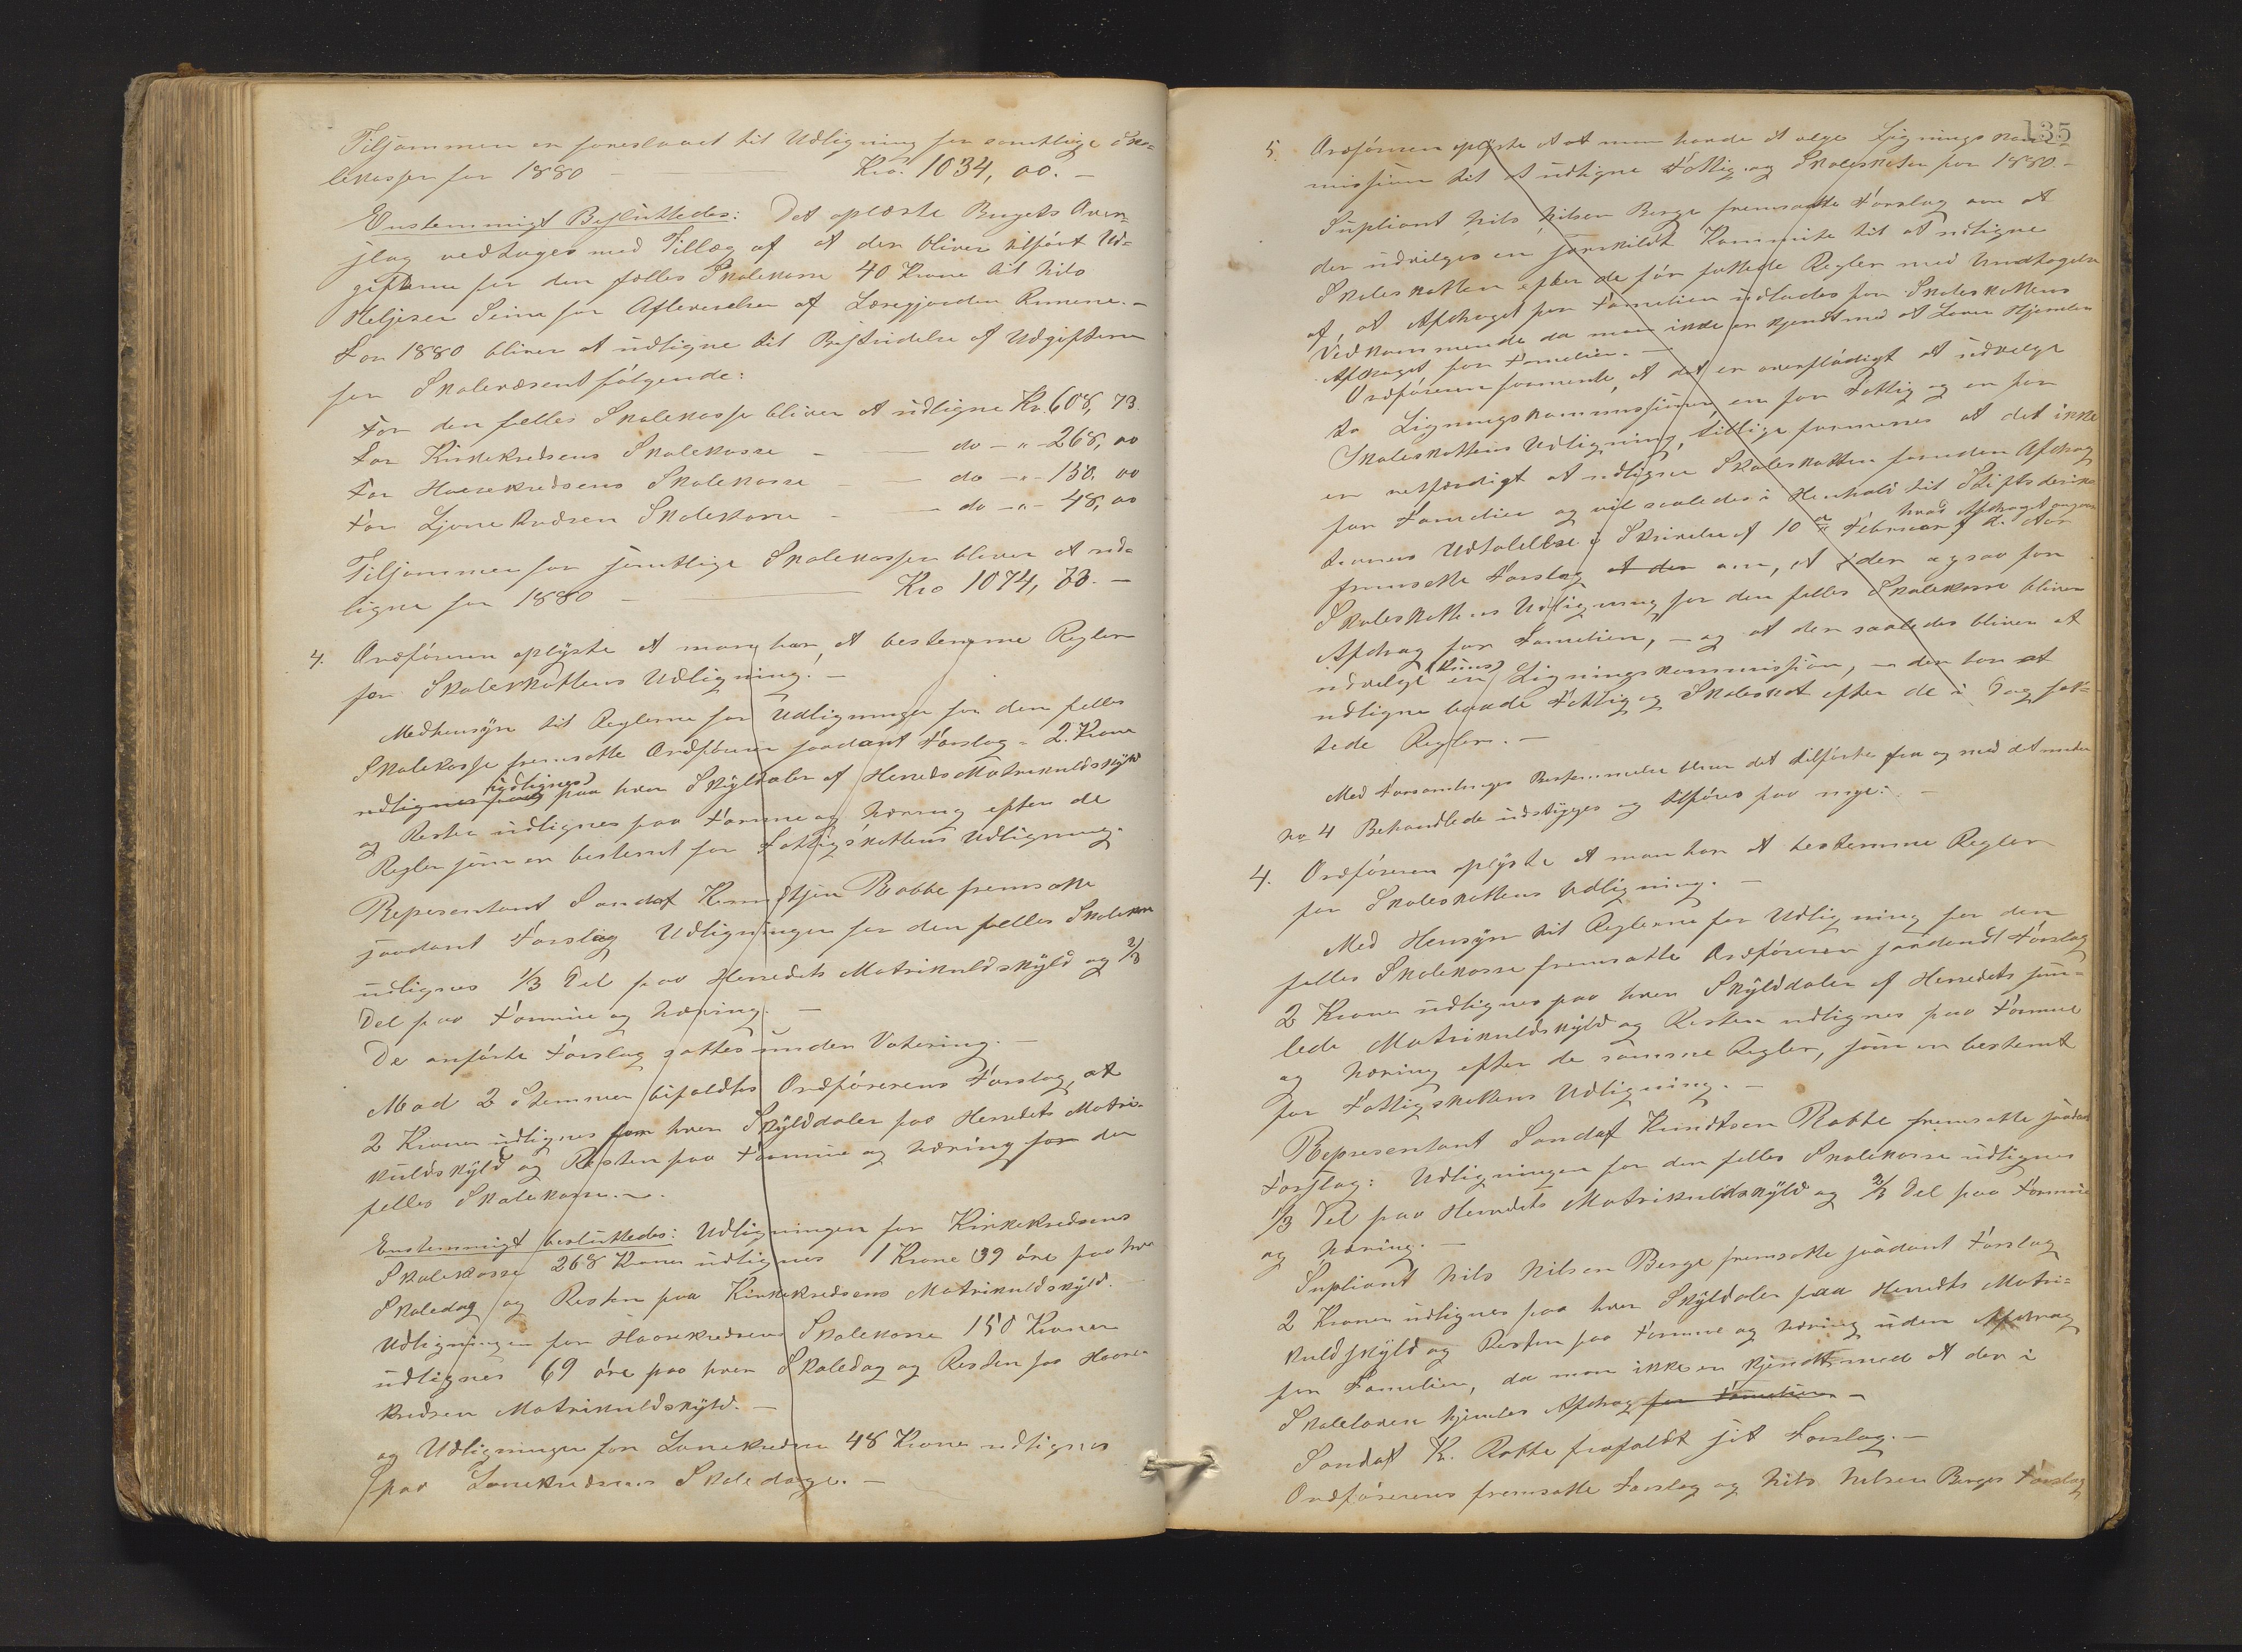 Tilsammen er foreslaaet til Udligning for samtlige Sko-
lekasser for 1880 — Kro. 1034, 00. —
Enstemmigt Besluttedes: Det oplæste Bugets Over-
slag vedtages med Tillæg af at der bliver tilført Ud-
gifterne for den fælles Skolekasse 40 Krone til Nils
Heljesen Seim for Afleverelsen af Læregjorden Rimene. —
For 1880 bliver at udligne til Bestridelse af Udgifterne
for Skolevæsent følgende:
For den felles Skolekasse bliver at udligne Kr. 608, 73.
For Kirkekredsens Skolekasse — do — " — 268, 00
For Haarekredsens Skolekasse — do — " — 150, 00
For Ljonekredsen Skolekasse — do — " — 48, 00
Tilsammen for samtlige Skolekasser bliver at ud-
ligne for 1880 — Kro 1074, 73. —
4. Ordføreren oplyste at man har, at bestemme Regler
for Skoleskattens Udligning. —
Medhensyn til Reglerne for Udligninger for den felles
Skolekasse fremsatte Ordføreren saadant Forslag " 2. Krone
udlignes
udlignes paa hver Skyldaler af Herreds Matrikuldskyld
og Resten udlignes paa Formue og Næring efter de
Regler som er bestemt for Fattigskattens Udligning.
Representant Sandof Knudtsen Rabbe fremsatte
saadant Forslag Udligningen for den felles Skolekasse
udlignes 1/3 Del paa Herredets Matrikuldskyld og 2/3
Del paa Formue og Næring. —
De anførte Forslag sattes under Votering. —
Mad 2 Stemmer bifaldtes Ordførerens Forslag, at
2 Kroner udlignes paa hver Skylddaler paa Herredets Matri-
kuldskyld og Resten paa Formue og Næring for den
felles Skolekasse. —
Enstemmigt besluttedes: Udligningen for Kirkekredsens
Skolekasse 268 Kroner udlignes 1 Krone 39 øre paa hver
Skoledag og Resten paa Kirkekredsens Matrikuldskyld. —
Udligningen for Haarekredsens Skolekasse 150 Kroner
udlignes 69 øre paa hver Skoledag og Resten paa Haare-
kredsen Matrikuldskyld. —
og Udligningen for Lonekredsen 48 Kroner udlignes
paa Lonekredsens Skoledage. —
135
5. Ordføreren oplyste at at man havde at velge Lignings kom-
mission til at udligne Fattig- og Skoleskatten for 1880. —
Supliant Nils Nilsen Berge fremsatte Forslag om at
der udvelges en særskildt Kommite til at udligne
Skoleskatten efter de før fattede Regler med Undtagelse
af, at Afdraget for Familien udlades for Skoleskattens
Vedkommende da man ikke er kjendt med at Loven Hjemler
Afdraget for Familien. —
Ordføreren formente, at det er overflødigt at udvelge
to Ligningskommissioner, en for Fattig og en for
Skoleskattens Udligning, tillige formenes at det ikke
er retferdigt at udligne Skoleskatten foruden Afdrag
for Familien og vil saaledes i Henhold til Stiftsdirek-
tionens Udtalelse i Skrivelse af 10de Februar d. Aar
hvad Afdraget angaar
fremsatte Forslag at der om, at der ogsaa for
Skoleskattens Udligning for den felles Skolekasse bliver
Afdrag for Familien, — og at der saaledes bliver at
(kuns)
udvelge en Ligningskommission, — der har at
udligne baade Fattig og Skoleskat efter de i Dag fat-
tede Regler. —
Med Forsamlinges Bestemmelse bliver det tilførte fra og med det under
No 4 Behandlede udstryges og tilføres paa nye: —
4. Ordføreren oplyste at man har at bestemme Regler
for Skoleskattens Udligning. —
Med Hensyn til Reglerne for Udligning for den
felles Skolekasse fremsatte Ordføreren saadandt Forslag
2 Kroner udlignes paa hver Skylddaler af Herredets sam-
lede Matrikuldskyld og Resten udlignes paa Formue
og Næring efter de samme Regler, som er bestemt
for Fattigskattens Udligning. —
Representant Sandof Knudtsen Rabbe fremsatte saadant
Forslag: Udligningen for den felles Skolekasse udlignes
1/3 Del paa Herredets Matrikuldskyld og 2/3 Del paa Formue
og Næring. —
Supliant Nils Nilsen Berge fremsatte saadant Forslag
2 Kroner udlignes paa hver Skyldaler paa Herredts Matri-
kuldskyld og Resten paa Formue og Næring uden Afdrag
for Familien, da man ikke er kjendt med at der i
Skoleloven hjemles Afdrag for Familien —
Sandof K. Rabbe frafaldt sit Forslag. —
Ordførerens fremsatte Forslag og Nils Nilsen Berges Forslag